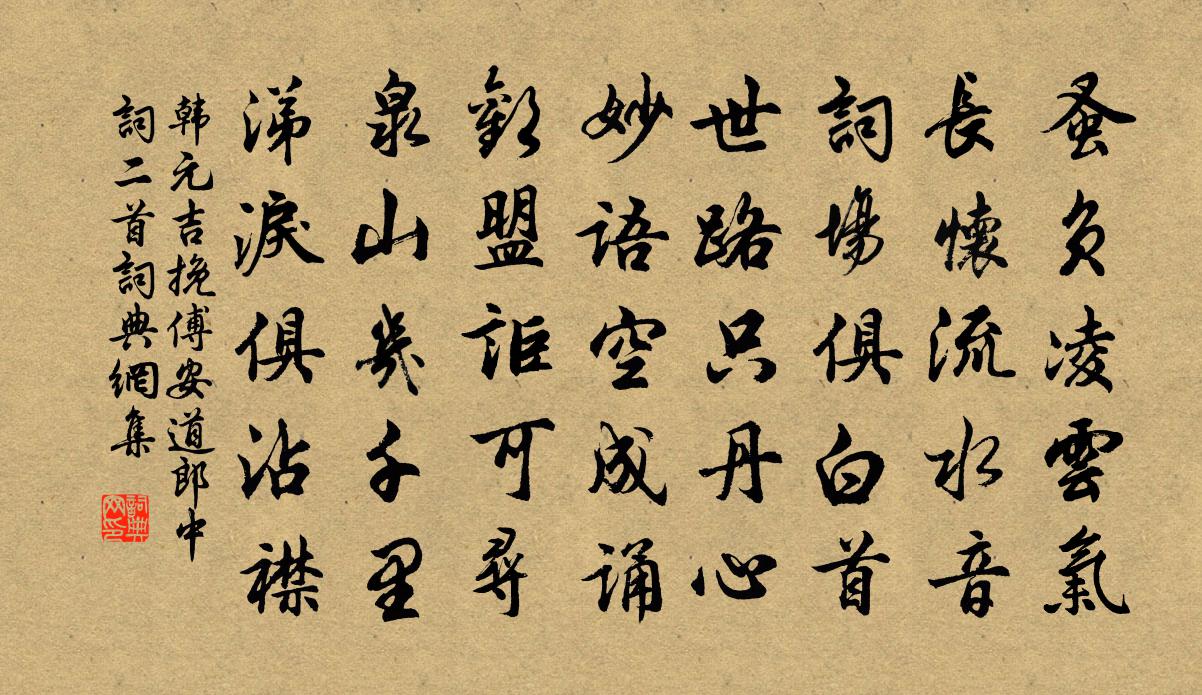 蚤负凌雲氣
長懷流水音
詞場俱白首
世路只丹心
妙语空成诵
歡盟詎可尋
泉山幾千里
涕淚俱沾襟
韩元吉挽傅安道郎中
詞二首詞典網集
詞典
网印